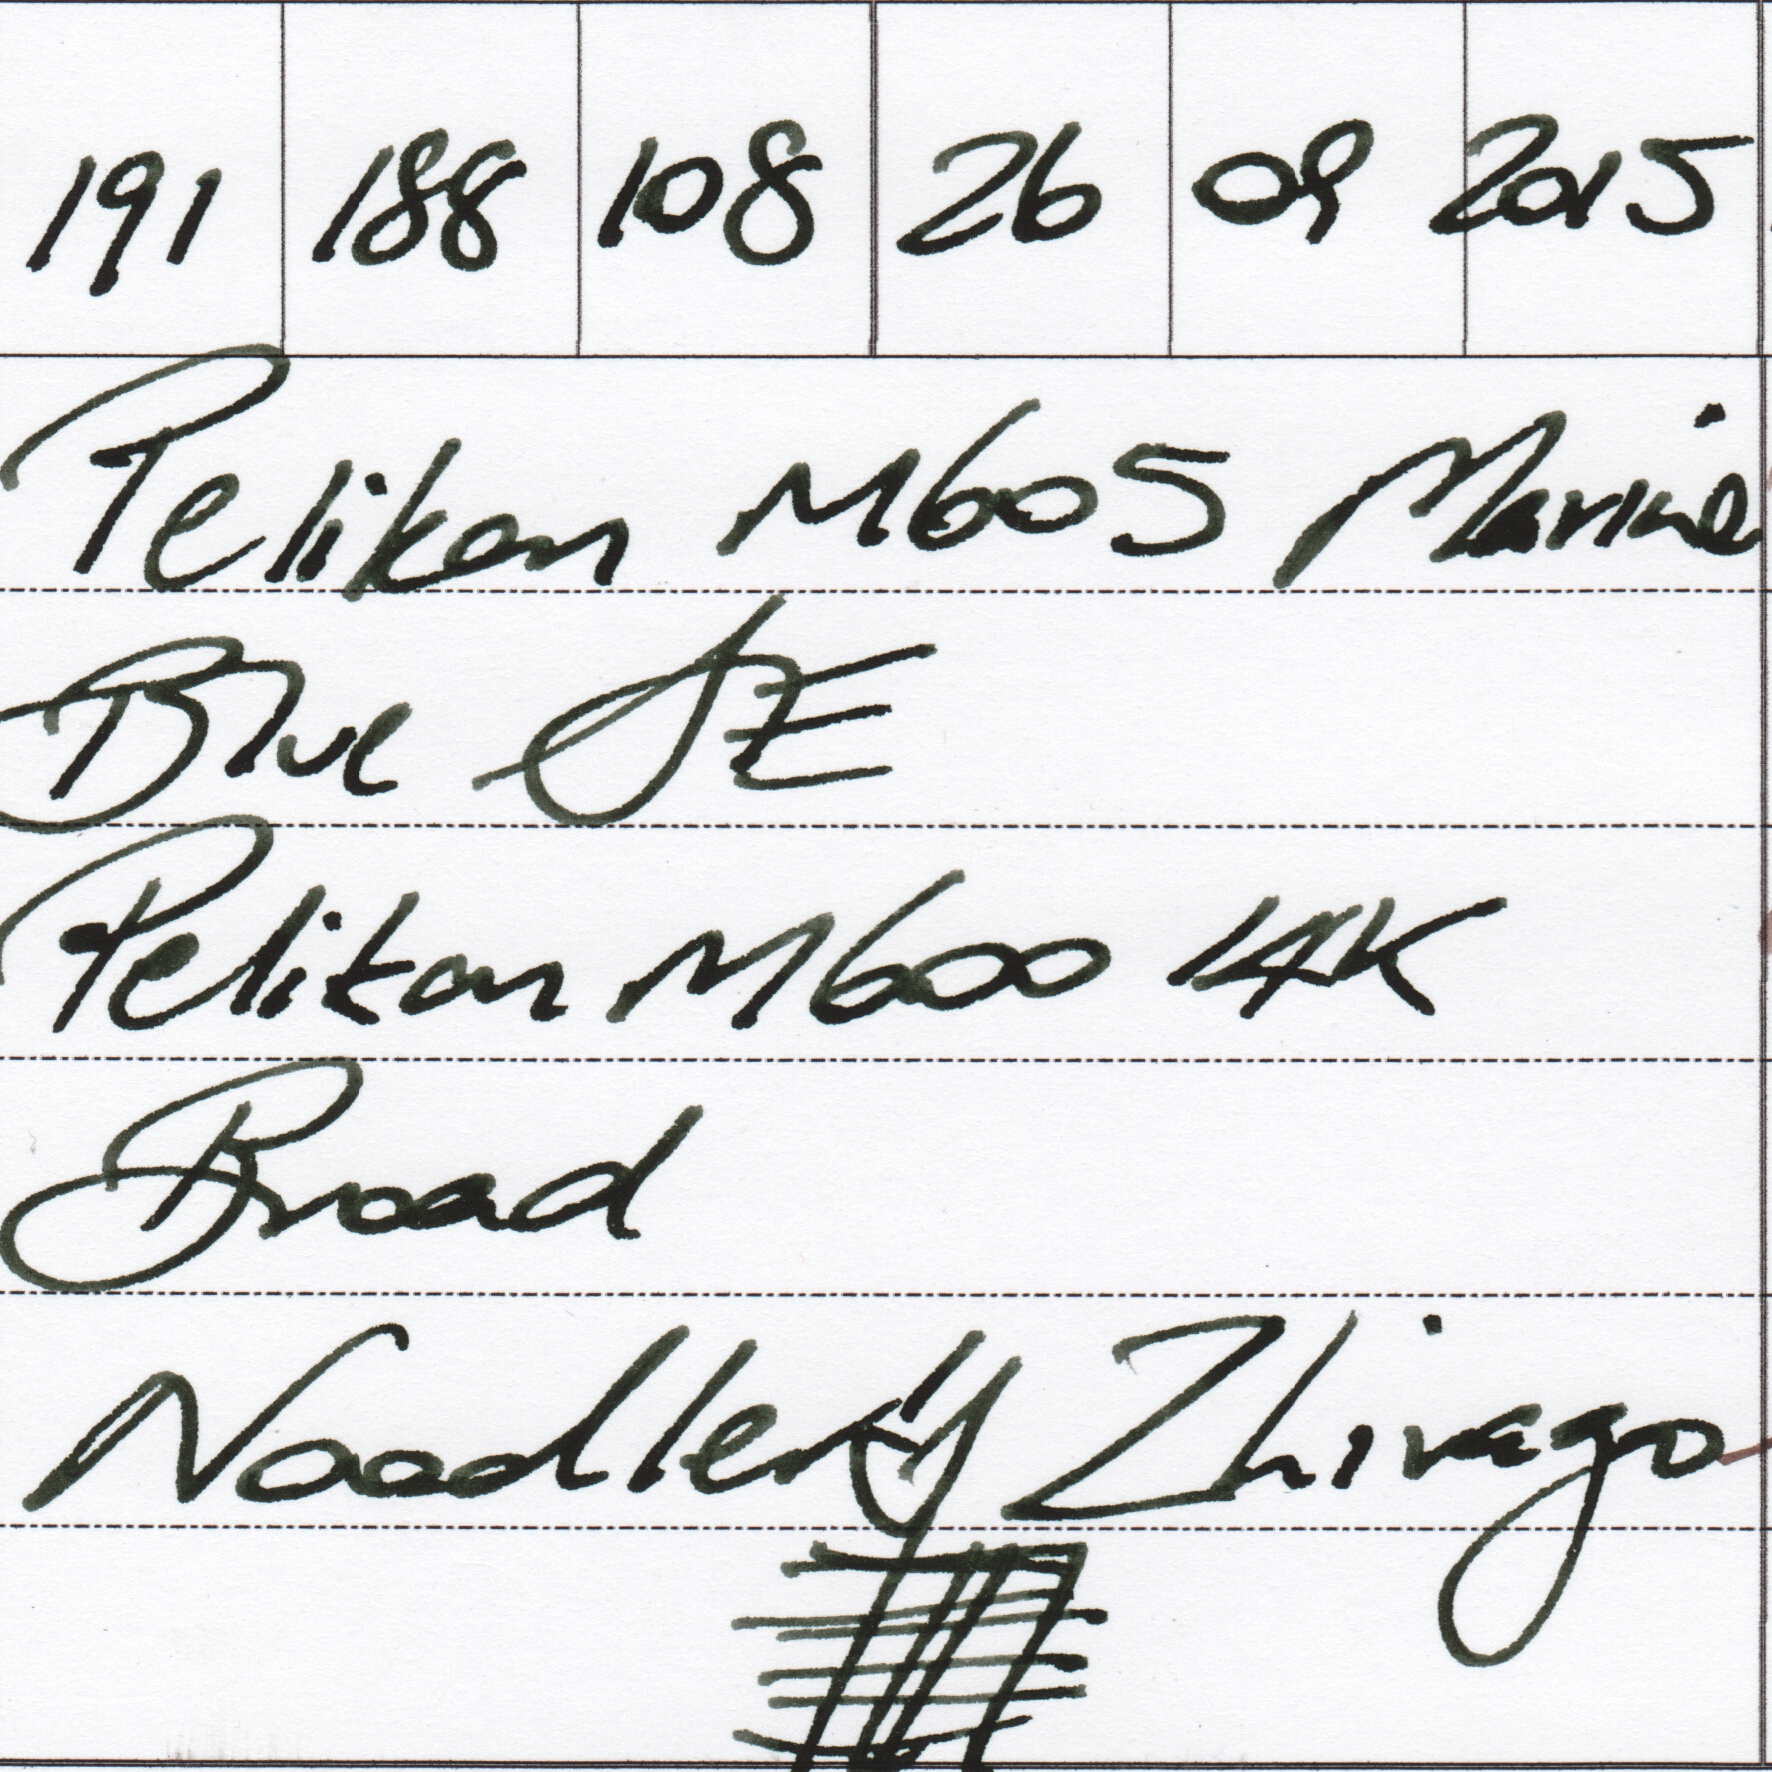 191 188 108 26 09 2015
Pelikan M605 Marine
Blue SE
Pelikan M600 14K
Broad
Noodler's Zhivago